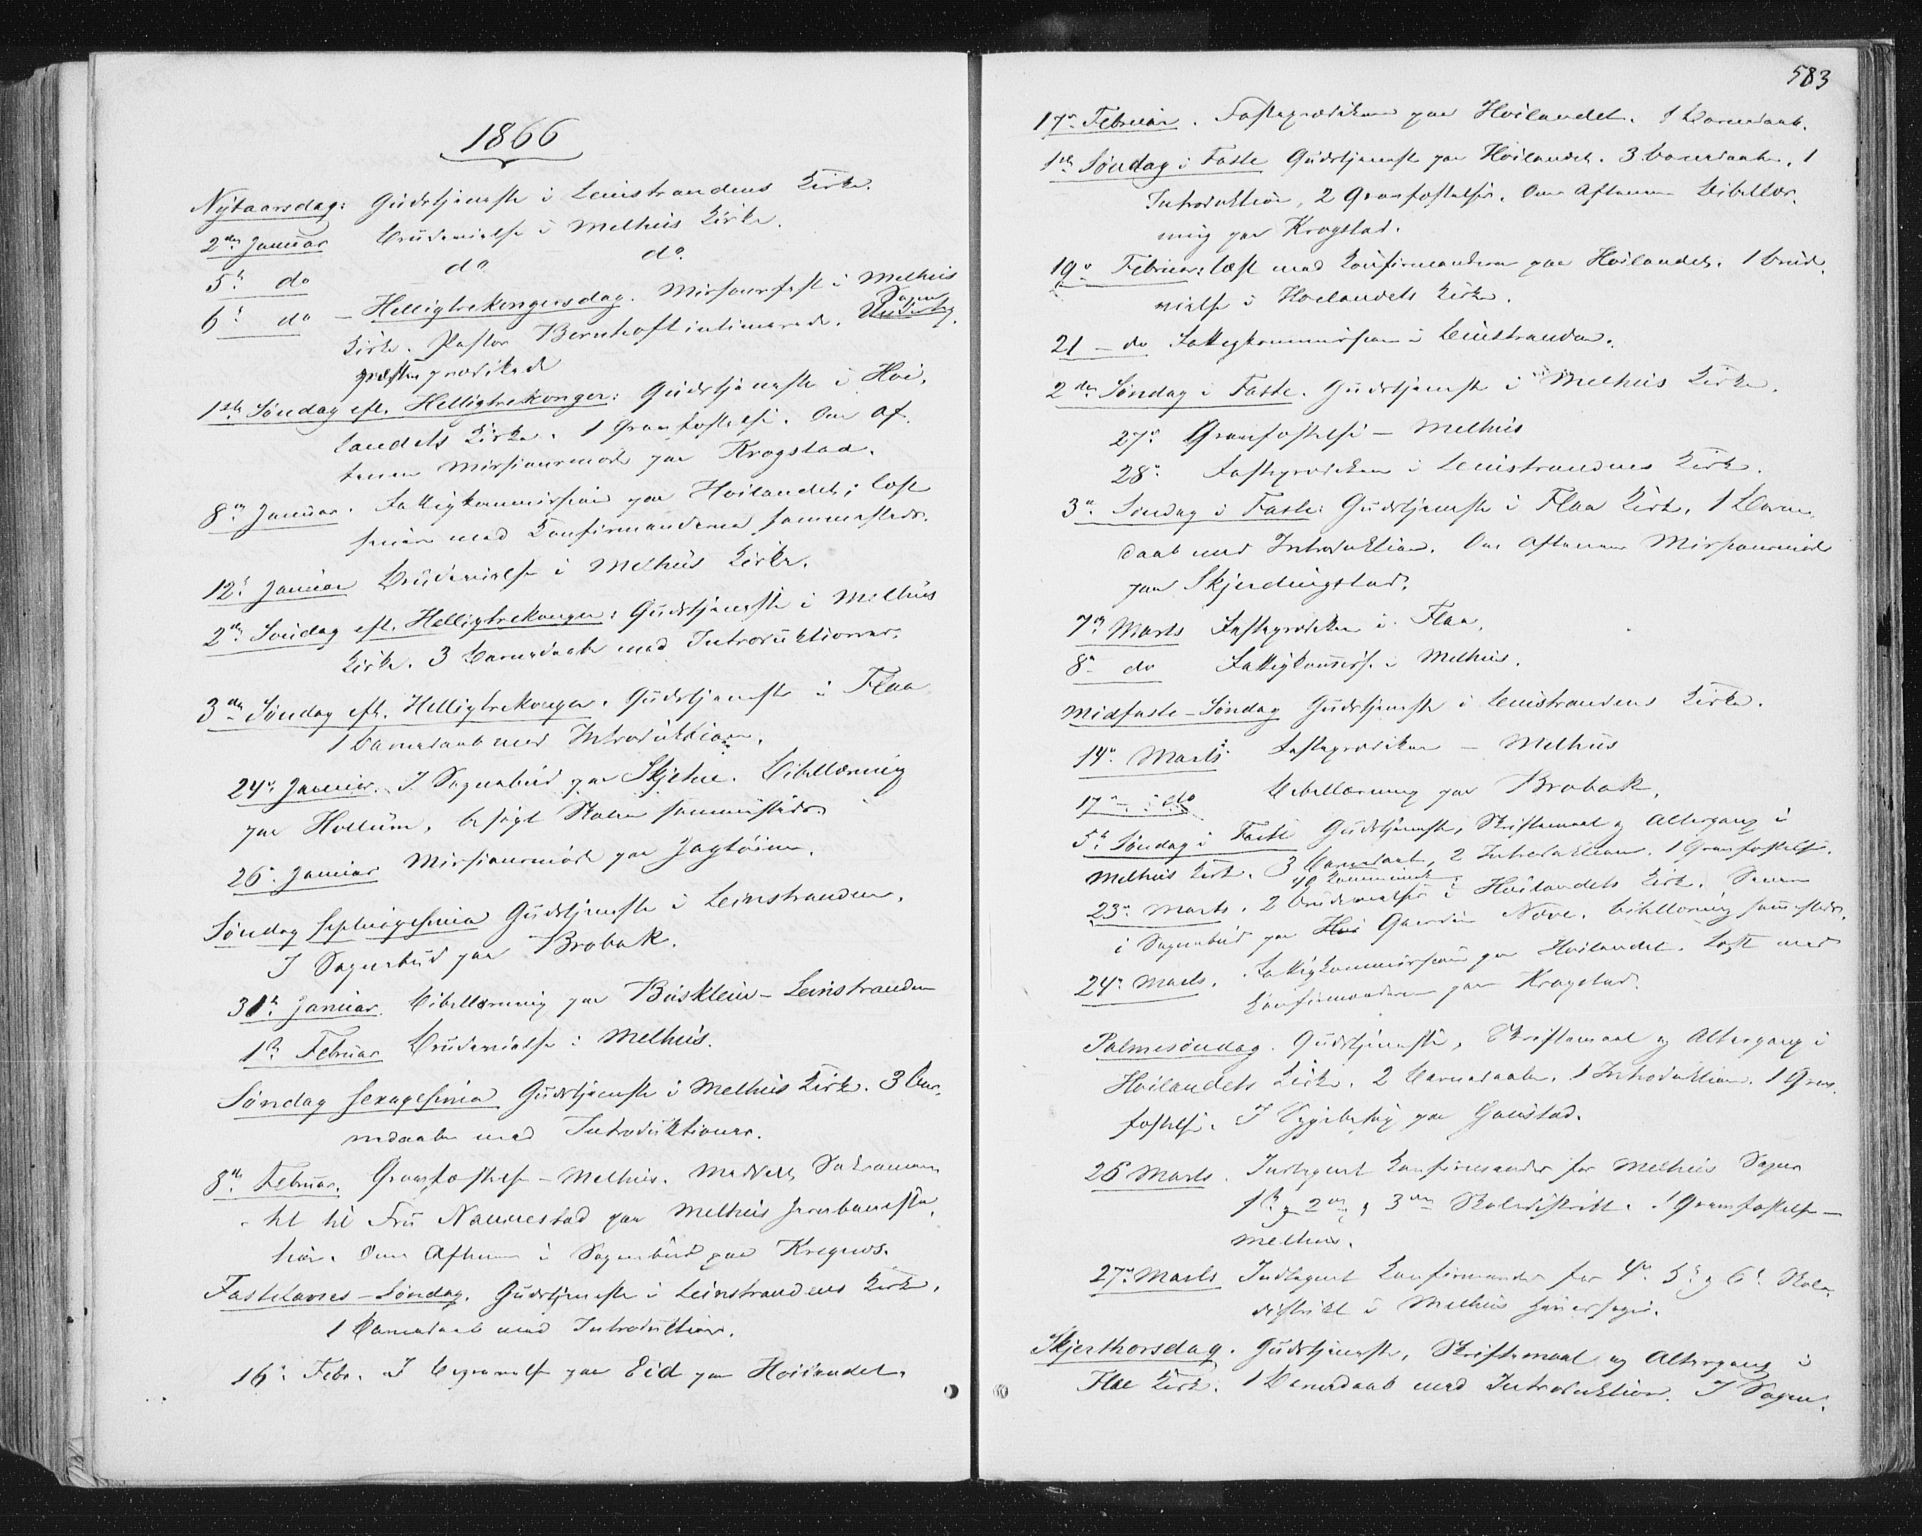 1866
Nytaarsdag: Gudstjeneste i Leinstrandens Kirke.
2den Januar Brudevielse i Melhus Kirke.
5te do do do.
6te do – Helligtrekongersdag. Missionsfest i Melhus
Kirke. Pastor Bernhoft intimerede. Sogne
præsten prædikede
1ste Søndag eft. Helligtrekonger: Gudstjeneste i Høi-
landets Kirke. 1 Gravfæstelse. Om Af-
tenen Missionsmøde paa Krogstad.
8de Januar. Fattigkommission paa Høilandet; læste
med Konfirmanderne sammesteds.
12te Januar Brudevielse i Melhus Kirke.
2den Søndag eft. Helligtrekonger: Gudstjeneste i Melhus
Kirke. 3 Barnedaab med Introduktioner.
3die Søndag eft. Helligtrekonger. Gudstjeneste i Flaa
1 Barnedaab med Introduktion.
24de Januar. I Sognebud paa Skjetne. Bibellæsning
paa Hollum, besøgt Skolen sammesteds
26. Januar Missionsmøde paa Jagtøien.
Søndag Septuagesima Gudstjeneste i Leinstranden.
I Sognebud paa Brobak.
31te Januar. Bibellæsning paa Busklein – Leinstranden
1ste Februar Brudevielse i Melhus.
Søndag Sexagesima Gudstjeneste i Melhus Kirke. 3 Bar-
nedaabe med Introduktioner.
8de Februar. Gravfæstelse – Melhus. Meddelt Sakramen-
tet til Fru Nannestad paa Melhus Jernbanesta-
tion. Om Aftenen i Sognebud paa Kregnes.
Fastelavns-Søndag. Gudstjeneste i Leinstrandens Kirke.
1 Barnedaab med Introduktion.
16de Febr. I Begravelse paa Eid paa Høilandet.
583
17de Februar. Fasteprædiken paa Høilandet. 1 Barnedaab.
1ste Søndag i Faste Gudstjeneste paa Høilandet. 3 Barnedaab, 1
Introduktion, 2 Gravfæstelser. Om Aftenen Bibellæs-
ning paa Krogstad.
19de Februar: læst med Konfirmanderne paa Høilandet. 1 Brude-
vielse i Høilandets Kirke.
21 – do Fattigkommission i Leinstranden.
2den Søndag i Faste. Gudstjeneste i Melhus Kirke.
27de Gravfæstelse – Melhus
28de Fasteprædiken i Leinstrandens Kirke.
3die Søndag i Faste: Gudstjeneste i Flaa Kirke. 1 Barne-
daab med Introduktion. Om Aftenen Missionsmøde
paa Skjerdingstad.
7de Marts Fasteprædiken i Flaa.
8de do Fattigkommiss. i Melhus.
Midfaste-Søndag Gudstjeneste i Leinstrandens Kirke.
14de Marts: Fasteprædiken – Melhus
17de – do Bibellæsning paa Brobak.
5te Søndag i Faste Gudstjeneste, Skriftemaal og Altergang i
Melhus Kirke. 3 Barnedaab, 2 Introduktioner. 1 Gravfæstelse.
40 Kommunik.
23de Marts. 2 Brudevielser i Høilandets Kirke. Samme
i Sognebud paa Høi Gaarden Nove. Bibellæsning sammesteds.
24de Marts. Fattigkommission paa Høilandet. Læst med
Konfirmanderne paa Krogstad.
Palmesøndag. Gudstjeneste, Skriftemaal og Altergang i
Høilandets Kirke. 2 Barnedaabe. 1 Introduktion. 1 Grav-
fæstelse. I Sygebesøg paa Gaustad.
26 Marts. Indtegnet Konfirmander for Melhus Sogns
1ste, 2den og 3die Skoledistrikt. 1 Gravfæstelse –
Melhus.
27de Marts Indtegnet Konfirmander for 4de 5te og 6te Skole-
distrikt i Melhus Hovedsogn.
Skjerthorsdag. Gudstjeneste, Skriftemaal og Altergang i
Flaa Kirke. 1 Barnedaab med Introduktion. I Sogne-